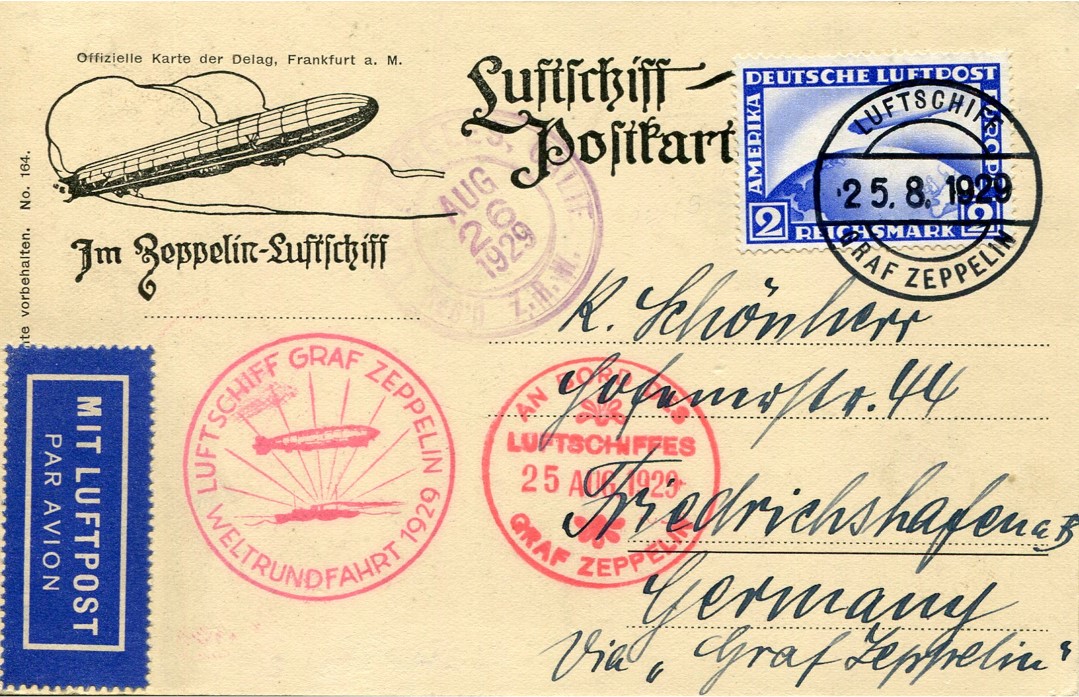 Offizielle Karte der Delag, Frankfurt a. M.
Luftschiff-
Postkart
Im Zeppelin-Luftschiff
vorbehalten. No. 164.
DEUTSCHE LUFTPOST
AMERIKA
EUROPA
2 REICHSMARK 2
LUFTSCHIFF
25.8.1929
GRAF ZEPPELIN
AUG
26
1929
Z.R.M.
K. Schönherr
44
Friedrichshafen a.B
Germany
Via „Graf Zeppelin"
LUFTSCHIFF GRAF ZEPPELIN
WELTRUNDFAHRT 1929
AN BORD DES
LUFTSCHIFFES
25 AUG 1929
GRAF ZEPPELIN
MIT LUFTPOST
PAR AVION